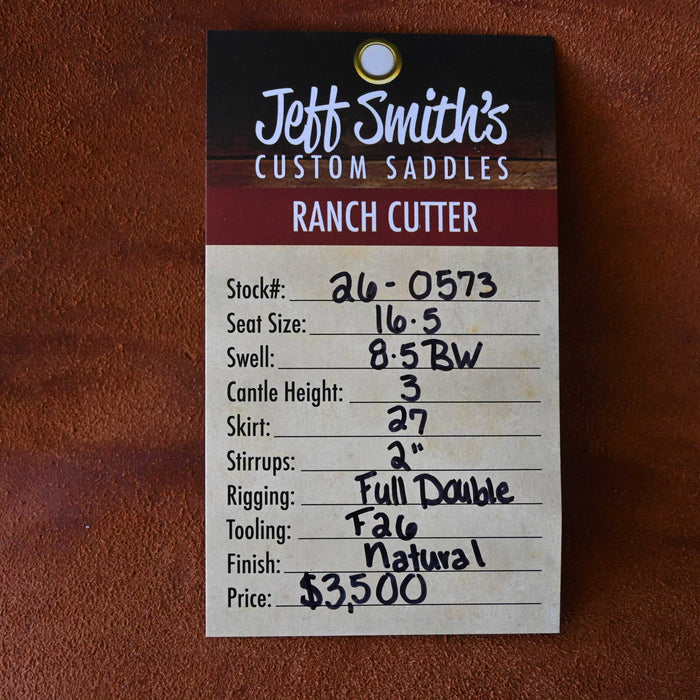 Jeff Smith's
CUSTOM SADDLES
RANCH CUTTER
Stock#: 26-0573
Seat Size: 16.5
Swell: 8.5 BW
Cantle Height: 3
Skirt: 27
Stirrups: 2"
Rigging: Full Double
Tooling: F26
Finish: Natural
Price: $3,500